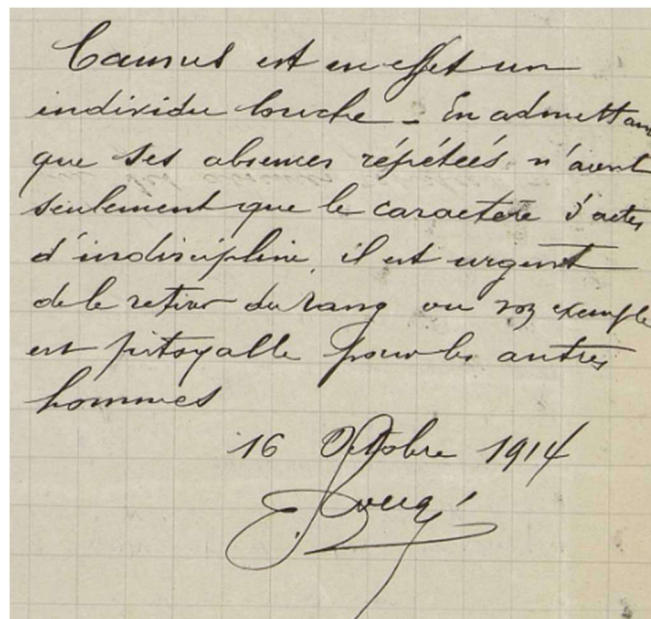 Camus est en effet un
individu louche _ En admettant
que ses absences répétées n'aient
seulement que le caractère d'actes
d'indiscipline, il est urgent
de le retirer du rang ou son exemple
est pitoyable pour les autres
hommes
16 Octobre 1914